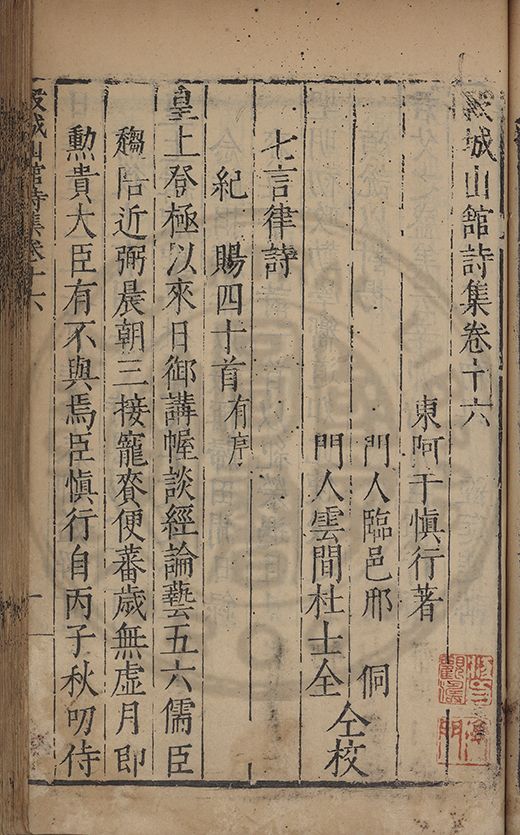 穀城山館詩集卷十六
東阿于慎行著
門人臨邑邢侗
門人雲間杜士全
仝校
七言律詩
紀賜四十首有序
皇上登極以來日御講幄談經論藝五六儒臣
趨陪近弼晨朝三接寵賚便蕃歲無虛月即
勳貴大臣有不與焉臣慎行自丙子秋叨侍
穀城山館詩集卷十六
一